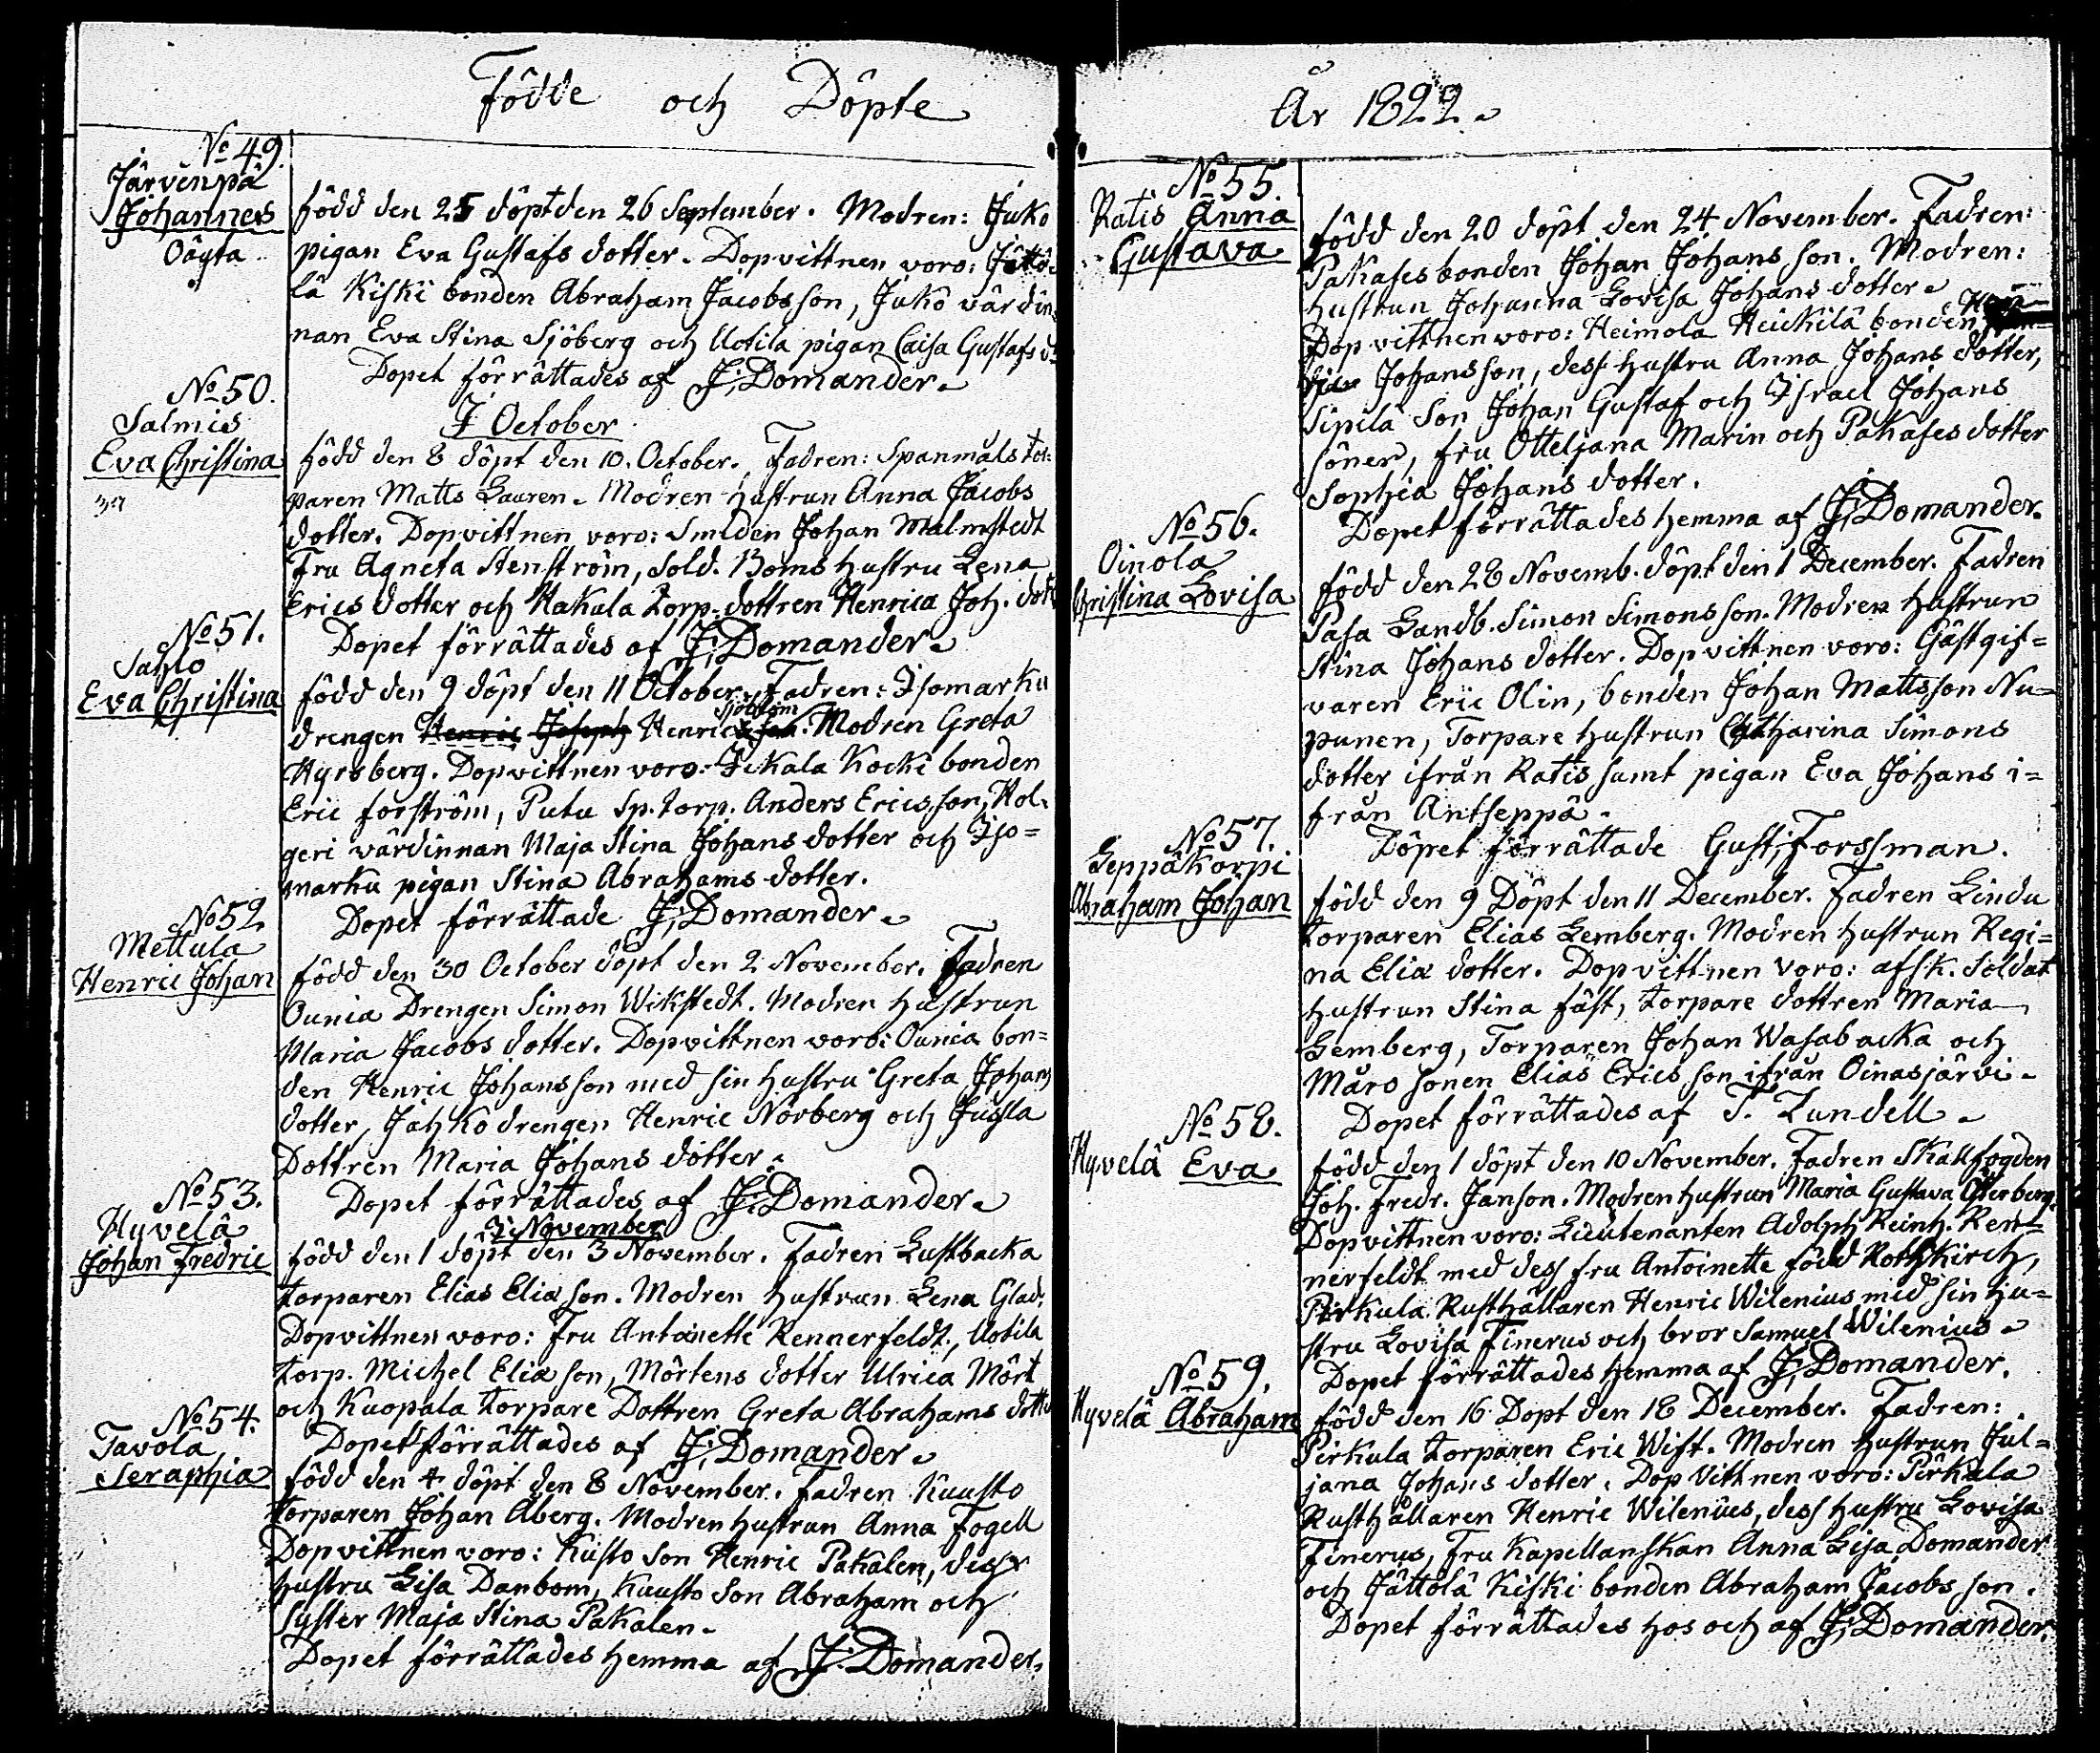 Födde och Döpte
No 49.
Järvenpä
Johannes
Oägta
född den 25 döpt den 26 September. Modren: Juko
pigan Eva Gustafs dotter. Dopvittnen voro:
lä Kiski bonden Abraham Jacobsson, Juko värdin-
nan Eva Stina Sjöberg och Uotila pigan Caisa Gustafs dr
Dopet förrättades af J. Domander.
I October
No 50.
Salmis
Eva Christina
född den 8 döpt den 10. October. Fadren: Spanmåls tor-
paren Matts Lauren. Modren Hustrun Anna Jacobs
dotter. Dopvittnen voro: Smeden Johan Malmstedt
Fru Agneta Stenström, Sold. Boms hustru Lena
Erics dotter och Hakala Torp. dottren Henrica Joh. dott
Dopet förrättades af J. Domander.
No 51.
Sahlo
Eva Christina
född den 9 döpt den 11 October. Fadren: Isomarku
Sjöblom
drengen Henric Joseph Henrics son. Modren Greta
Hyrsberg. Dopvittnen voro: Ickala Kocki bonden
Eric forström, Putu Sp. torp. Anders Ericsson, Hol-
geri värdinnan Maja Stina Johans dotter och Iso=
marku pigan Stina Abrahams dotter.
Dopet förrättade J. Domander.
No 52.
Mettula
Henric Johan
född den 30 October döpt den 2 November. Fadren
Ounia Drengen Simon Wikstedt. Modren Hustrun
Maria Jacobs dotter. Dopvittnen voro: Ounia bon=
den Henric Johansson med sin hustru Greta Johans
dotter, Jahko drengen Henric Norberg och Jussla
Dottren Maria Johans dotter.
Dopet förrättades af J. Domander.
I November
No 53.
Hyvelä
Johan Fredric
född den 1 döpt den 3 November. Fadren Lustbacka
torparen Elias Eliæ son. Modren Hustrun Lena Glad.
Dopvittnen voro: Fru Antoinette Rennerfeldt, Uotila
torp. Michel Eliæ son, Mörtens dotter Ulrica Mört
och Kuopala torpare Dottren Greta Abrahams dotter
Dopet förrättades af J. Domander.
No 54.
Tavola
Seraphia
född den 4 döpt den 8 November. Fadren Kuusto
torparen Johan Åberg. Modren hustrun Anna Fogell
Dopvittnen voro: Kuusto Son Henric Pakalen, dess
hustru Lisa Danbom, Kuusto Son Abraham och
syster Maja Stina Pakalen.
Dopet förrättades hemma af J. Domander.
År 1822.
No 55.
Ratis Anna
Gustava
född den 20 döpt den 24 November. Fadren:
Pakases bonden Johan Johans son. Modren:
Hustrun Johanna Lovisa Johans dotter.
Dopvittnen voro: Heimola Heickilä bonden
Johansson, dess hustru Anna Johans dotter,
Sipilä Son Johan Gustaf och Israel Johans
söner, fru Otteljana Marin och Pakases dotter
Sophia Johans dotter.
Dopet förrättades hemma af J. Domander.
No 56.
Oinola
Christina Lovisa
född den 28 Novemb. döpt den 1 December. Fadren
Pasa Landb. Simon Simons son. Modren Hustrun
Stina Johans dotter. Dopvittnen voro: Gästgif=
varen Eric Olin, bonden Johan Mattsson Nu=
punen, Torpare hustrun Catharina Simons
dotter ifrån Ratis samt pigan Eva Johans i=
från Antseppä.
Döpet förrättade Gust. Forssman.
No 57.
Leppäkorpi
Abraham Johan
född den 9 Döpt den 11 December. Fadren Lindu
torparen Elias Lemberg. Modren hustrun Regi=
na Eliæ dotter. Dopvittnen voro: afsk. Soldat
hustrun Stina fäst, torpare dottren Maria
Lemberg, Torparen Johan Wasabacka och
Måro sonen Elias Erics son ifrån Oinasjärvi.
Dopet förrättades af T. Lundell.
No 58.
Hyvelä Eva
född den 1 döpt den 10 November. Fadren Skallfogden
Joh. Fredr. Janson. Modren hustrun Maria Gustava Österberg.
Dopvittnen voro: Lieutenanten Adolph Reinh. Ren=
nerfeldt med dess fru Antoinette född Rothkirch,
Pirkula Rusthållaren Henric Wilenius med sin hu=
stru Lovisa Finerus och bror Samuel Wilenius.
Dopet förrättades hemma af J. Domander.
No 59.
Hyvelä Abraham
född den 16 Dopt den 18 December. Fadren:
Pirkula torparen Eric Wist. Modren hustrun Jul=
jana Johans dotter. Dop Vittnen voro: Pirkula
Rusthållaren Henric Wilenius, dess hustru Lovisa
Finerus, Fru Kapellanskan Anna Lisa Domander
och Jättölä Kiski bonden Abraham Jacobs son.
Dopet förrättades hos och af J. Domander.